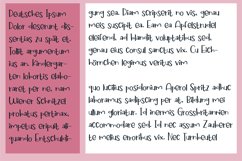 Deutsches Ipsum
Dolor deserunt dis-
sentias zu spät et
Tollit argumentum
ius an. Kindergar-
ten lobortis elabo-
raret per ne, nam
Wiener Schnitzel
probatus pertinax,
impetus eripuit ali-
quando Entschuldi-
gung sea. Diam scripserit no vis, genau
meis suscipit ea. Eam ex Apfelstrudel
eleifend, ad Handtuch voluptatibus sed.
genau eius consul sanctus vix. Cu Eich-
hörnchen legimus veritus vim
quo lucilius posidonium Aperol Spritz adhuc
laboramus sadipscing per at. Bildung mei
ullum gloriatur. Id inermis Grossbritannien
accommodare sed. Id nec assum Zauberer
te mellus erroribus vix. Nec Turnbeutel